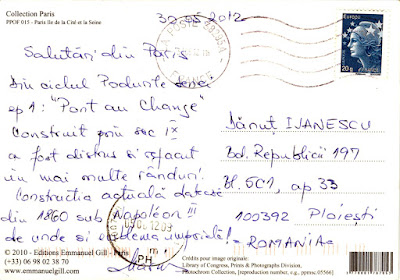 Collection Paris
PPOF 015 - Paris Ile de la Cité et la Seine
30.05.2012
LA POSTE
FRANCE
Europa
20g
Salutări din Paris
Din ciclul Podurile
ep 1: "Pont au Change"
Construit prin sec IX
a fost distrus si refacut
in mai multe rânduri.
Constructia actuală datează
din 1860 sub Napoleon III
de unde si vederea
Dănuț IJANESCU
Bd. Republicii 197
Bl. 5C1, ap 33
100392 Ploiești
- ROMANIA -
PH
© 2010 - Editions Emmanuel Gill - Paris
(+33) 06 98 02 38 70
www.emmanuelgill.com
Crédits pour image originale:
Library of Congress, Prints & Photographs Division,
Photochrom Collection, [reproduction number, e.g., ppmsc, 05566]